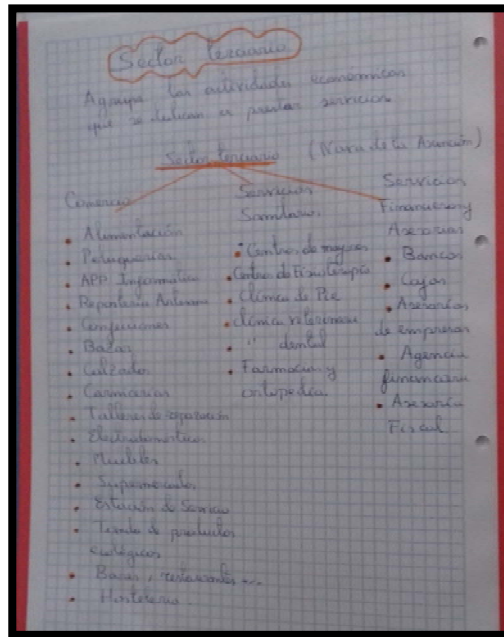 Sector terciario
Agrupa las actividades económicas
que se dedican a prestar servicios
Sector terciario (Nava de la Asunción)
Comercio
• Alimentación
• Peluquerías
• APP Informática
• Repostería Artesana
• Confecciones
• Bazar
• Calzados
• Carnicerías
• Talleres de reparación
• Electrodomésticos
• Muebles
• Supermercados
• Estación de Servicio
• Tienda de productos
ecológicos
• Bares, restaurantes ...
• Hostelería.
Servicios
Sanitarios.
• Centros de mayores
• Centros de Fisioterapia
• Clínica de Pie
• Clínica veterinaria
• " dental
• Farmacia y
ortopedia.
Servicios
Financieros y
Asesorías
• Bancos
• Cajas
• Asesorías
de empresas
• Agencia
financiera
• Asesoría
Fiscal